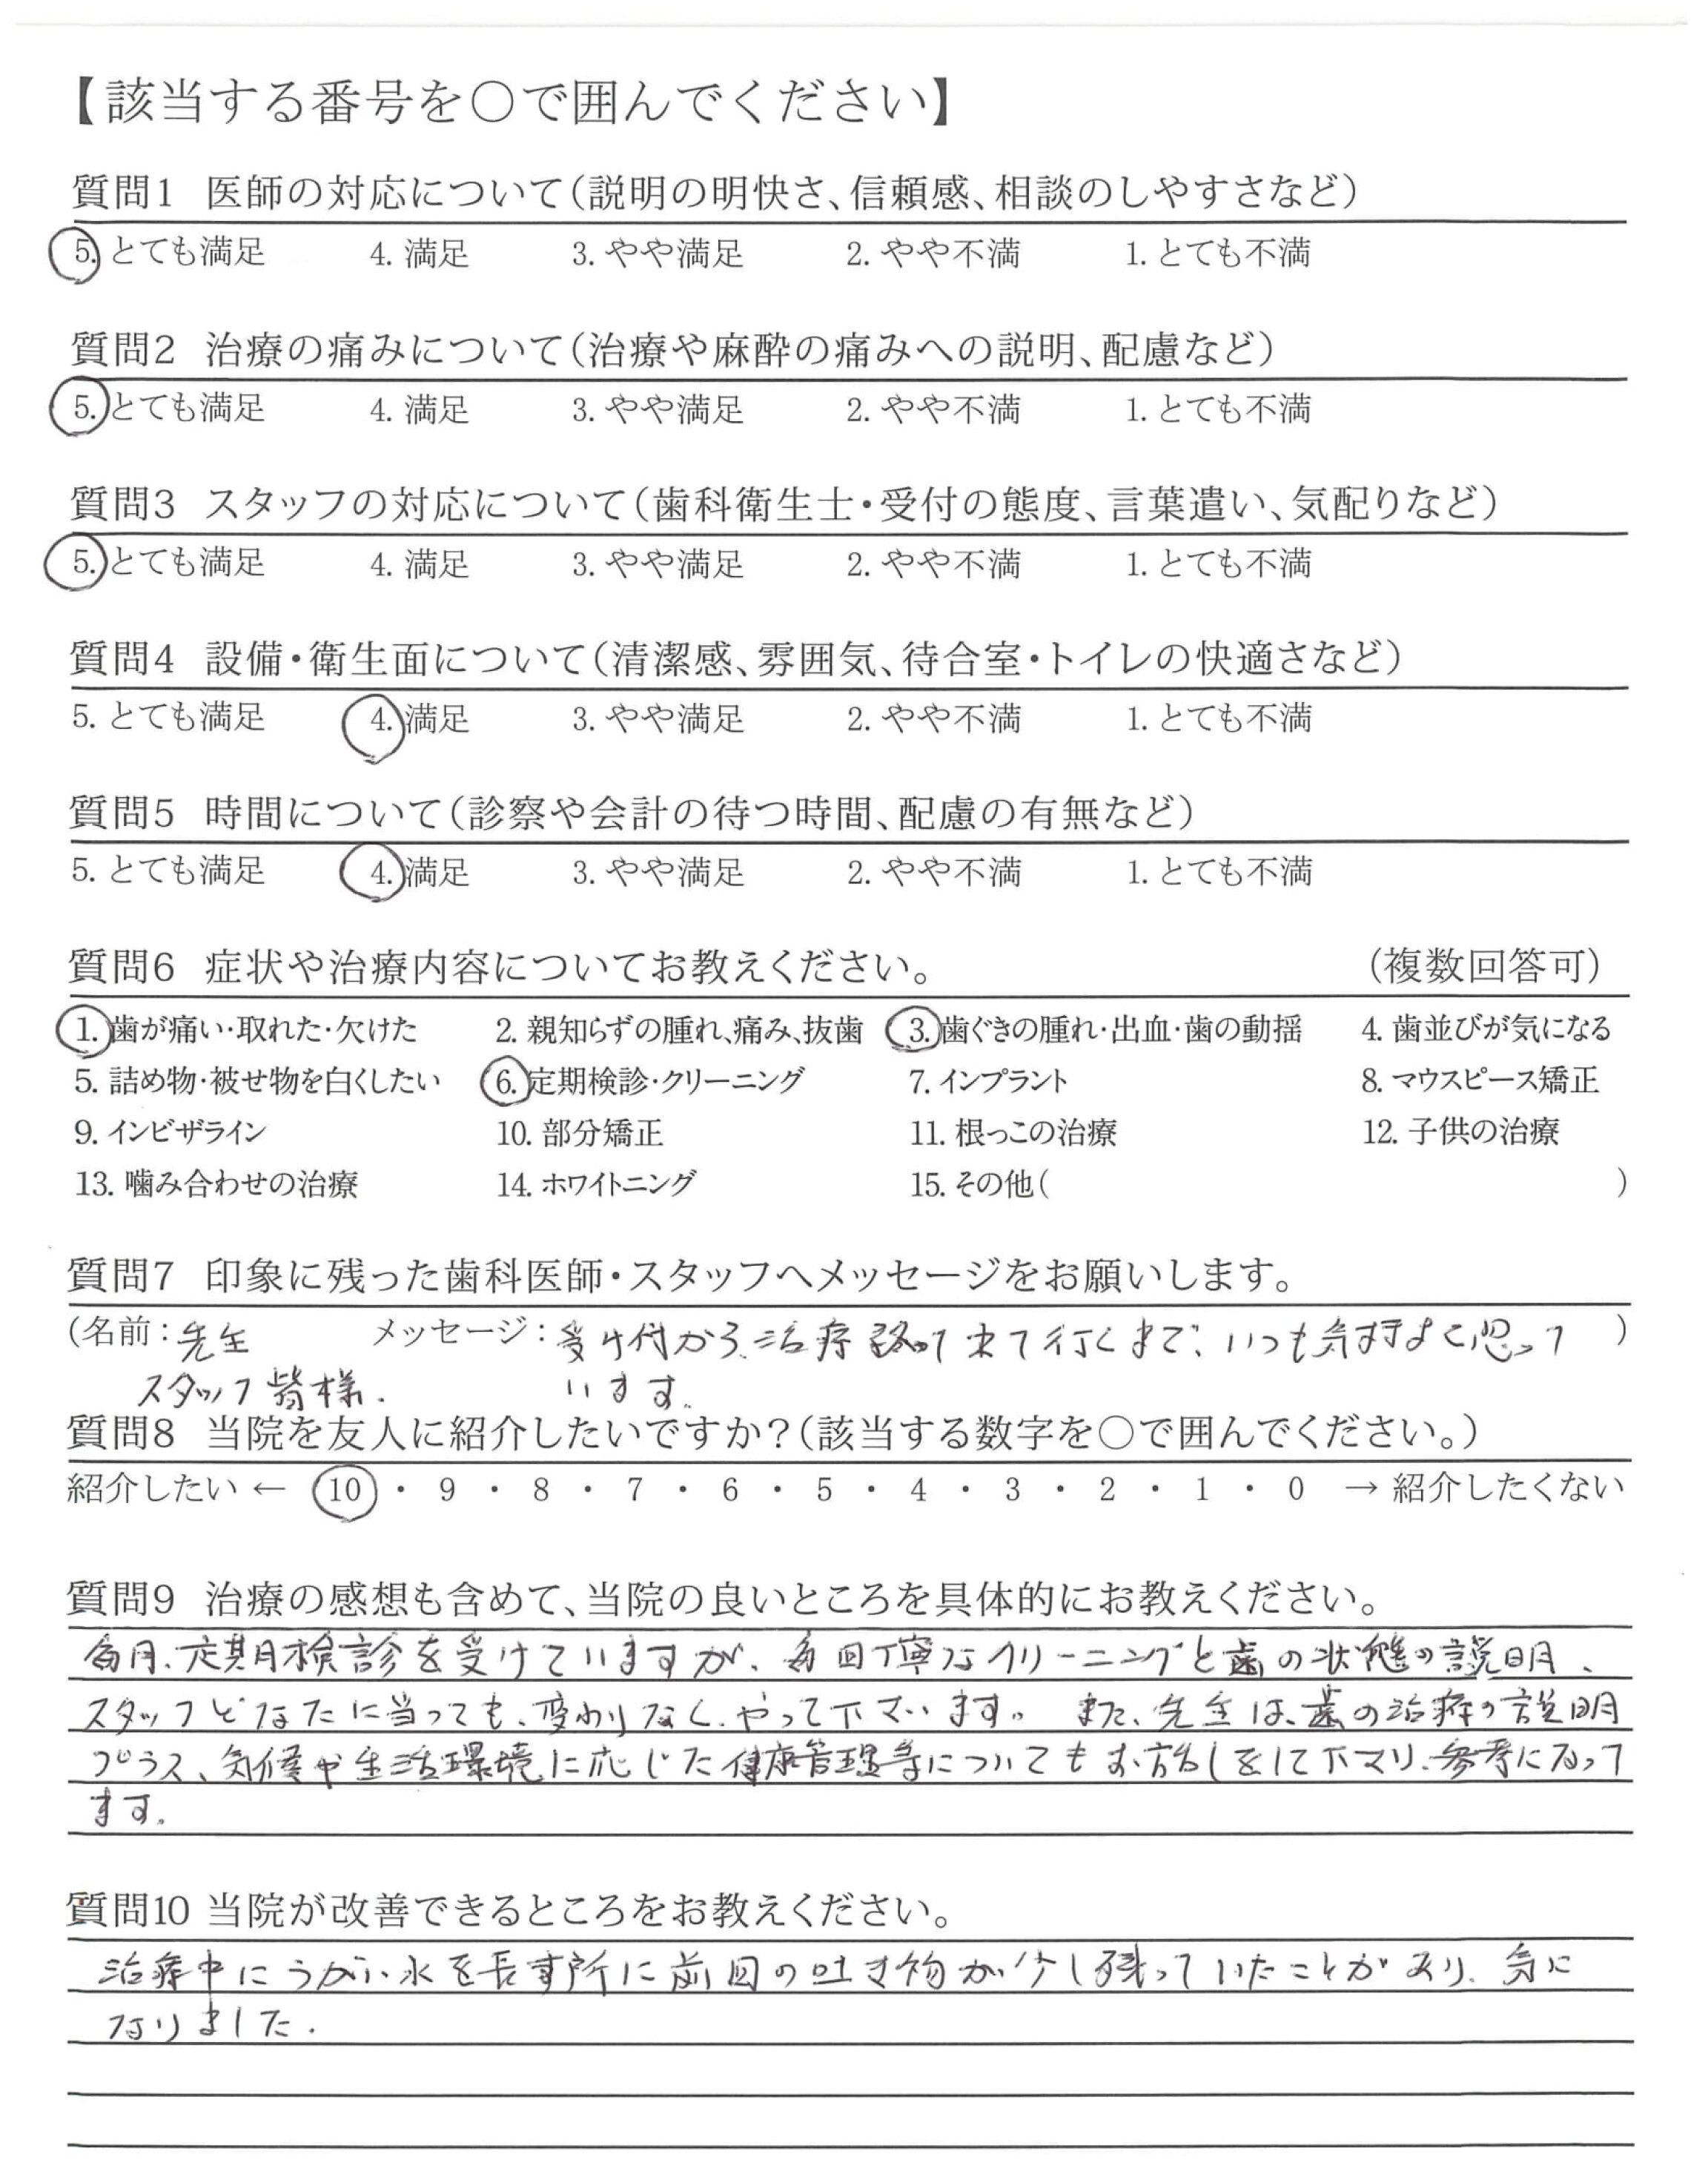 【該当する番号を○で囲んでください】
質問1 医師の対応について(説明の明快さ、信頼感、相談のしやすさなど)
5. とても満足 4. 満足 3. やや満足 2. やや不満 1. とても不満
質問2 治療の痛みについて(治療や麻酔の痛みへの説明、配慮など)
5. とても満足 4. 満足 3. やや満足 2. やや不満 1. とても不満
質問3 スタッフの対応について(歯科衛生士・受付の態度、言葉遣い、気配りなど)
5. とても満足 4. 満足 3. やや満足 2. やや不満 1. とても不満
質問4 設備・衛生面について(清潔感、雰囲気、待合室・トイレの快適さなど)
5. とても満足 4. 満足 3. やや満足 2. やや不満 1. とても不満
質問5 時間について(診察や会計の待つ時間、配慮の有無など)
5. とても満足 4. 満足 3. やや満足 2. やや不満 1. とても不満
質問6 症状や治療内容についてお教えください。 (複数回答可)
1. 歯が痛い・取れた・欠けた 2. 親知らずの腫れ、痛み、抜歯 3. 歯ぐきの腫れ・出血・歯の動揺 4. 歯並びが気になる
5. 詰め物・被せ物を白くしたい 6. 定期検診・クリーニング 7. インプラント 8. マウスピース矯正
9. インビザライン 10. 部分矯正 11. 根っこの治療 12. 子供の治療
13. 噛み合わせの治療 14. ホワイトニング 15. その他( )
質問7 印象に残った歯科医師・スタッフへメッセージをお願いします。
(名前：先生 メッセージ：受け付から治療終って出て行くまで、いつも気持よく思って )
スタッフ皆様. います。
質問8 当院を友人に紹介したいですか?(該当する数字を○で囲んでください。)
紹介したい ← 10 ・ 9 ・ 8 ・ 7 ・ 6 ・ 5 ・ 4 ・ 3 ・ 2 ・ 1 ・ 0 → 紹介したくない
質問9 治療の感想も含めて、当院の良いところを具体的にお教えください。
毎月、定期検診を受けていますが、毎回丁寧なクリーニングと歯の状態の説明、
スタッフどなたに当っても、変わりなく、やって下さいます。 また、先生は、歯の治療の説明
プラス、気候や生活環境に応じた健康管理等についてもお話しをして下さり、参考になって
ます。
質問10 当院が改善できるところをお教えください。
治療中にうがい水を流す所に前回の吐き物が少し残っていたことがあり、気に
なりました.